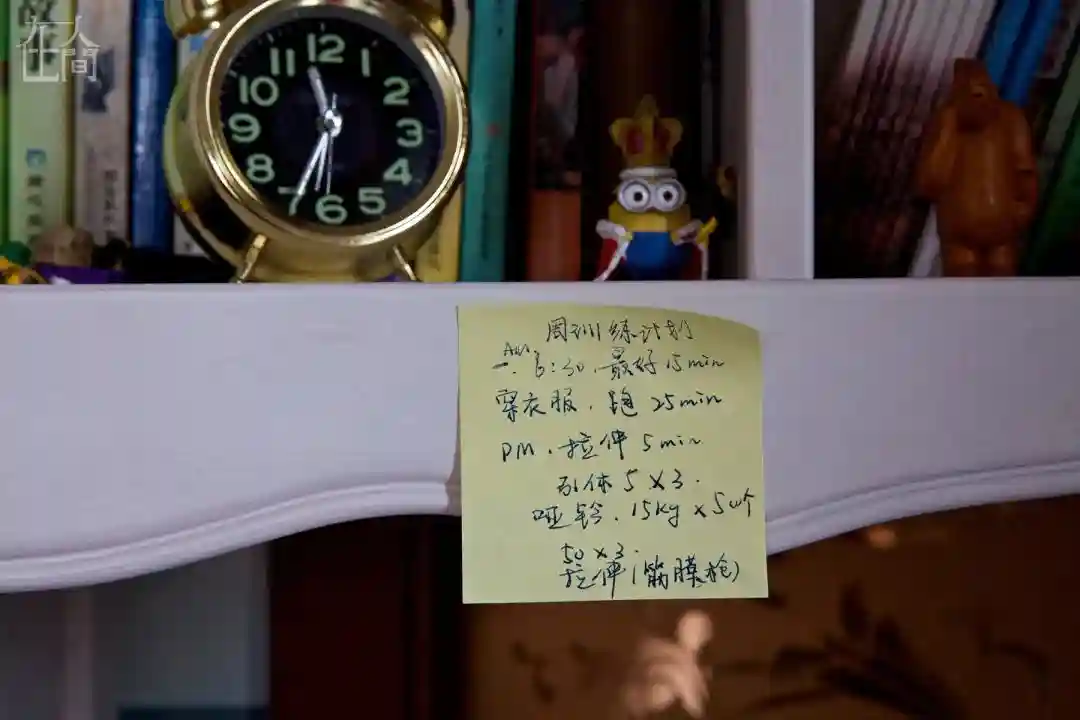 在人間
12
11
1
10
2
9
3
8
4
7
5
6
周训练计划
AM
一. 6:30. 最好 15min
穿衣服. 跑 25min
PM. 拉伸 5min
引体 5×3.
哑铃. 15kg × 50个
50×3.
拉伸(筋膜枪)